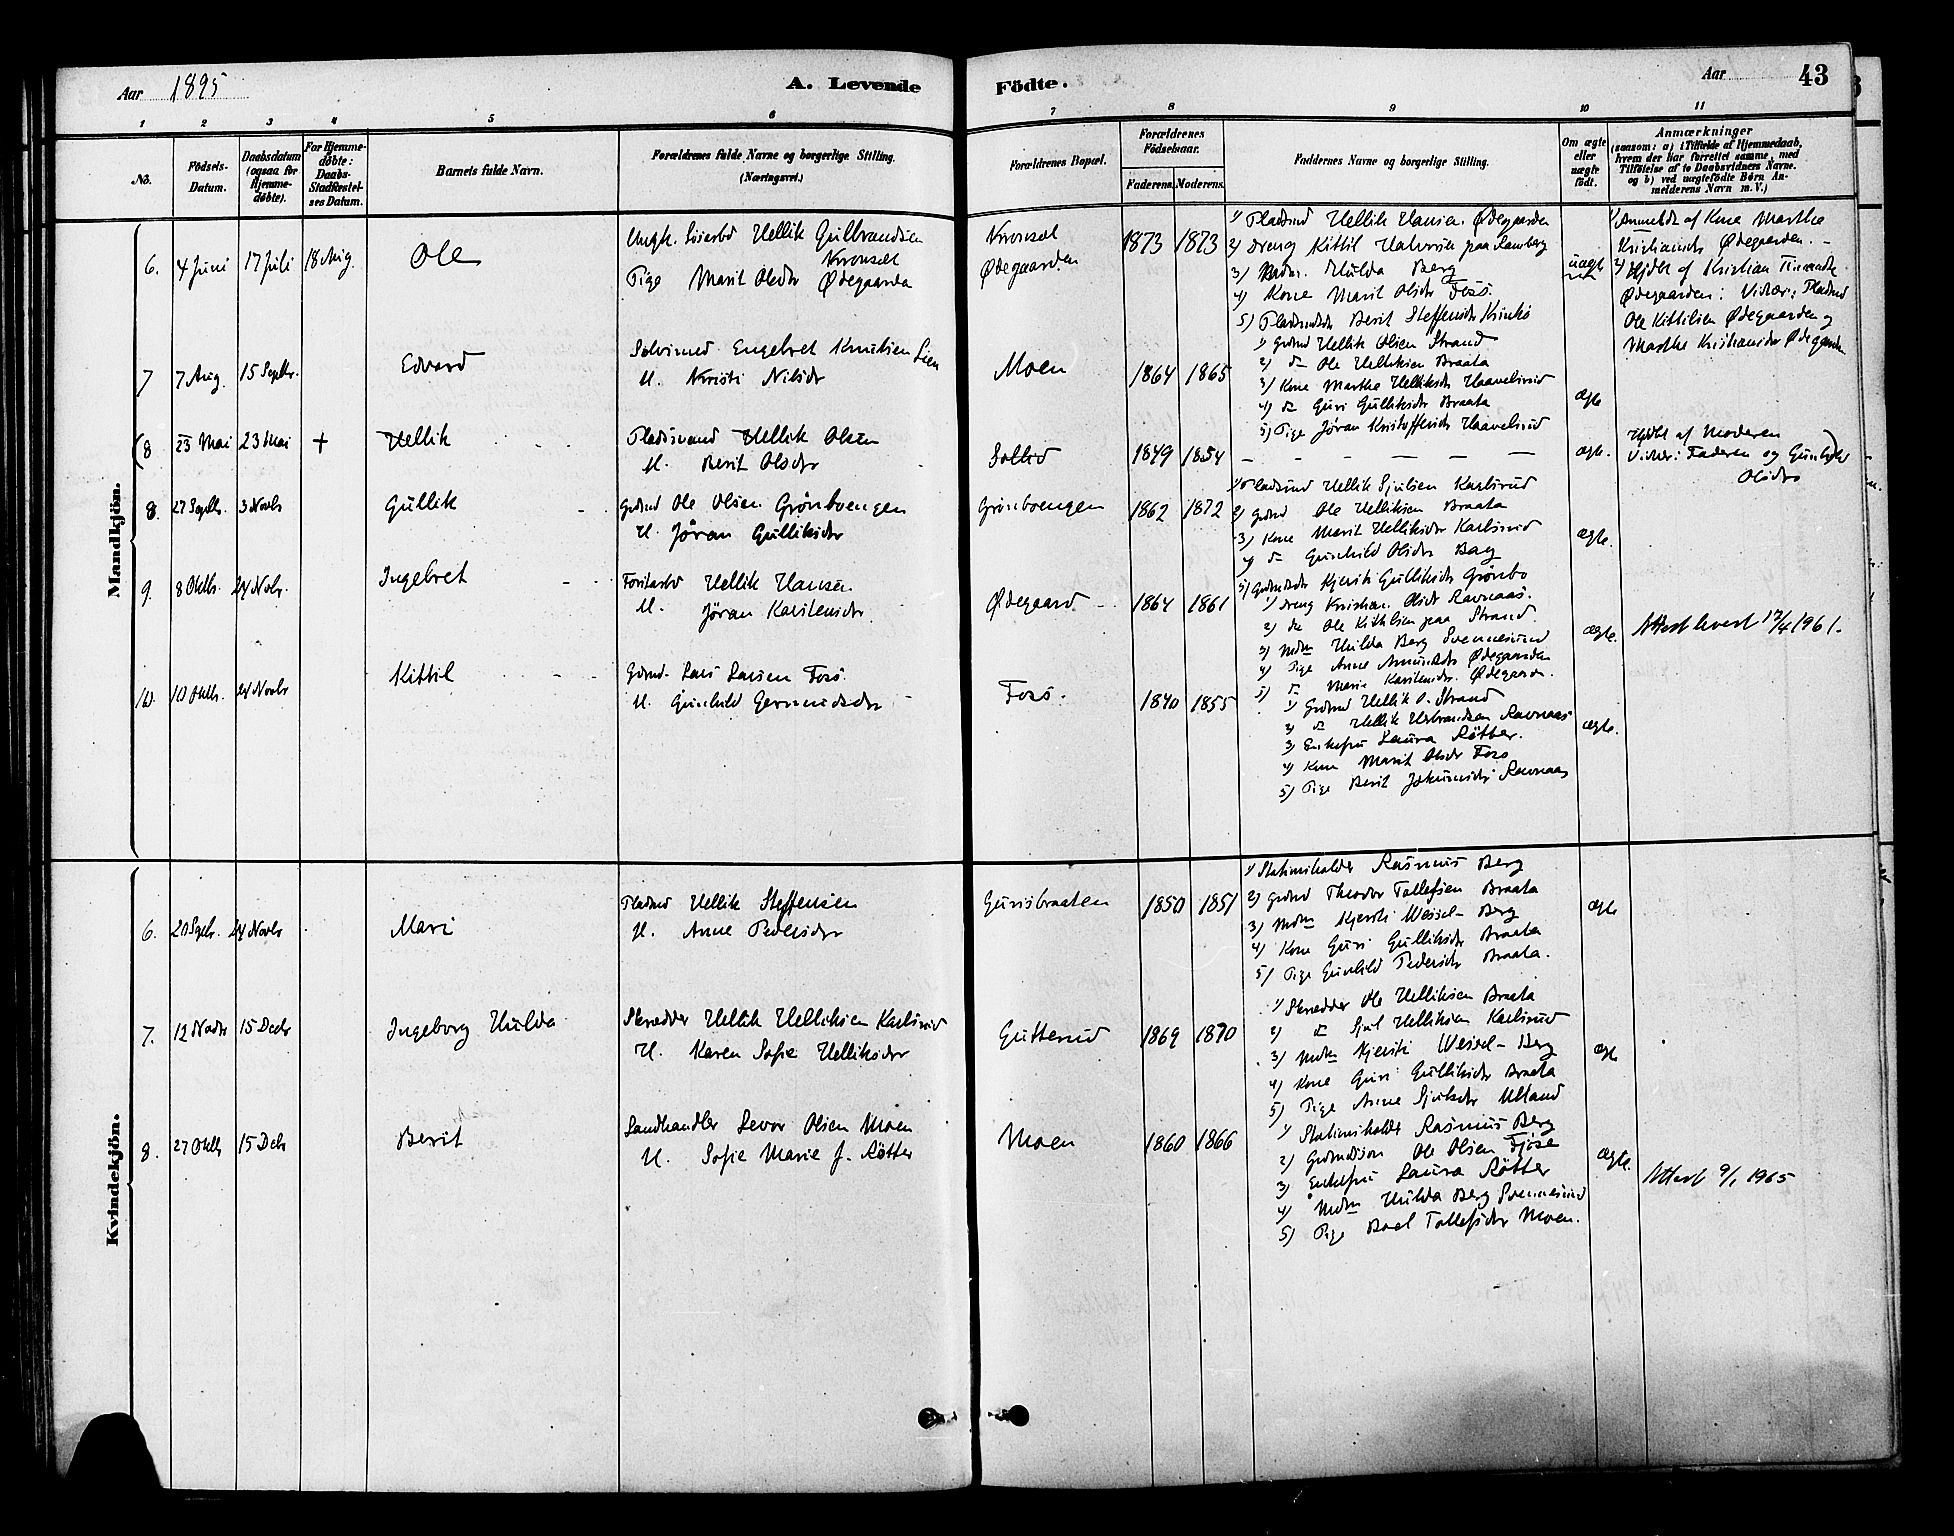 Aar 1895
A. Levende Födte.
Aar
43
1 2 3 4 5 6 7 8 9 10 11
No.
Födsels-Datum.
Daabsdatum (ogsaa for Hjemme-döbte).
For Hjemme-døbte: Daabs-Stadfæstel-ses Datum.
Barnets fulde Navn.
Forældrenes fulde Navne og borgerlige Stilling. (Næringsvei.)
Forældrenes Bopæl.
Forældrenes Födselsaar.
Faderens. Moderens.
Faddernes Navne og borgerlige Stilling.
Om ægte eller uægte født.
Anmærkninger
(saasom: a) i Tilfælde af Hjemmedaab, hvem der har forrettet samme, med Tilföielse af to Daabsvidners Navne. og b) ved uægtefödte Børn An-melderens Navn m. V.)
Mandkjön.
6. 4 Juni 17 Juli 18 Aug. Ole
Ungk. Hellik Gulbrandsen Kronsæl
Pige Marit Olsdtr Ødegaarden
Kronsæl
Ødegaarden
1873 1873
1) Pladsmd Hellik Hansen Ødegaarden
2) Dreng Kittil Halvorsen paa Ramberg
3) Madm. Hulda Berg
4) Kone Marit Olsdtr Foss.
5) Berit Steffensdtr
uægte
1) Anmeldt af Kone Marthe
Kristiansdtr Ødegaarden. -
2) Hjdbt af Kristian
Ødegaarden: Vidner: Pladsmd
Ole Kittilsen Ødegaarden og
Marthe Kristiansdtr Ødegaarden
7 7 Aug. 15 Septbr. Edvard
Engebret Knutsen Lien
H. Kristi Nilsdtr
Moen
1864 1865
1) Grdmd Hellik Olsen Strand
2) do Ole Helliksen Braata
3) Kone Marthe Helliksdtr Haavelsrud
4) do Guri Gulliksdtr Braata
5) Pige Jøran Kristoffersdtr Haavelsrud
ægte
(8 23 Mai 23 Mai † Hellik
Pladsmand Hellik Olsen
H. Berit Olsdtr
Sollid
1849 1854
ægte.
Hjdbt af Moderen
Vidner: Faderen og Gunhild)
Olsdtr
8. 27 Septbr. 3 Novbr Gullik
Grdmd Ole Olsen Grönboengen
H. Jøran Gulliksdtr
Grönboengen
1862 1872
1) Pladsmd Hellik Sjulsen Karlsrud
2) Grdmd Ole Helliksen Braata
3) Kone Marit Helliksdtr Karlsrud
4) do Gunhild Olsdtr Berg
5) Kjersti Gulliksdtr Grönbo
ægte.
9. 8 Oktbr. 24 Novbr. Ingebret
Hellik Hansen
H. Jöran Karlensdtr.
Ødegaard.
1864 1861
1) Dreng Kristian Olsen Ravnaas.
2) do Ole Kittilsen paa Strand.
3) Mdm Hulda Berg Svennesund
4) Pige Anne Amundsdtr Ødegaarden
5) do Marie Karlensdtr. Ødegaarden.
ægte.
Attest levert 17/4 1961.
10. 10 Oktbr. 24 Novbr Kittil
Grdmd. Lars Larsen Foss
H. Gunhild Germundsdtr
Foss.
1840 1855
1) Grdmd Hellik O. Strand
2) do Hellik Ravnaas
3) Enkefru Laura Rötter.
4) Kone Marit Olsdtr Foss
5) Pige Berit Ravnaas
ægte.
Kvindekjön.
6. 20 Septbr. 24 Novbr Mari
Pladsmd Hellik Steffensen
H. Anne Pedersdtr
Gurisbraaten
1850 1851
1) Stationsholder Rasmus Berg
2) Grdmd Theodor Tollefsen Braata
3) Mdm Kjersti Wessel-Berg
4) Kone Guri Gulliksdtr Braata
5) Pige Gunhild Pedersdtr Braata.
ægte
7. 12 Novbr 15 Decbr Ingeborg Hulda
Skrædder Hellik Helliksen Karlsrud
H. Karen Sofie Helliksdtr
Gutterud
1869 1870
1) Skrædder Ole Helliksen Braata
2) do Sjul Helliksen Karlsrud
3) Mdm Kjersti Wessel-Berg
4) Kone Guri Gulliksdtr Braata
5) Pige Anne Sjulsdtr Ulland
ægte
8. 27 Oktbr 15 Decbr Berit
Landhandler Levor Olsen Moen
H. Sofie Marie f. Rötter
Moen
1860 1866
1) Stationsholder Rasmus Berg
2) Grdmdssön Ole Olsen Fjöse
3) Enkefru Laura Rötter
4) Mdm Hulda Berg Svennesund
5) Pige Boel Tollefsdtr Moen.
ægte.
Attest 9/1 1965